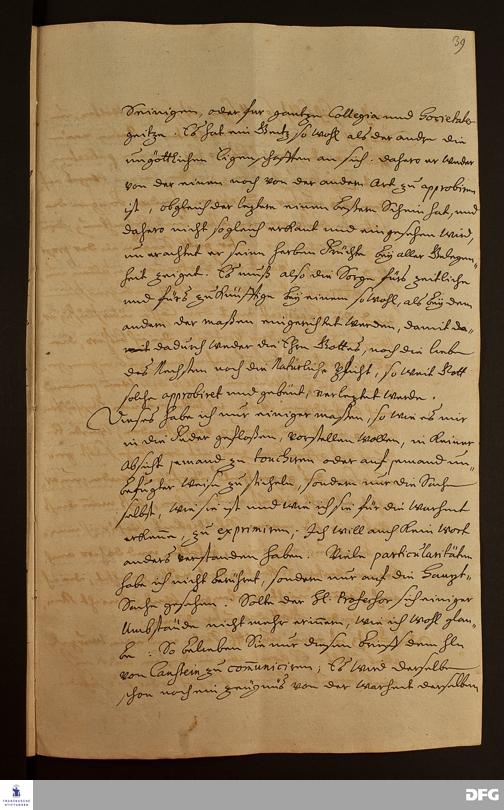 39
Seinigen, oder fur gantze Collegia und Societäten
geitze. Es hat ein Geitz so wohl als der andre die
ungöttlichen Eigenschafften an sich. dahero er weder
von der einen noch von der andern Art zu approbiren
ist, obgleich der letztere einen bessern Schein hat, und
dahero nicht sogleich erkant und eingesehen wird,
unerachtet er seine herben Früchte bey aller Gelegen-
heit zeiget. Es muß also die Sorge fürs zeitliche
und fürs zukünfftige bey einem so wohl, als bey dem
andern der maßen eingerichtet werden, damit da-
dadurch weder die Ehre Gottes, noch die liebe
des Nechsten noch die Natürliche Pflicht, so weit Gott
solche approbiret und gebeut, verletzet werde.
Dieses habe ich nur einiger maßen, so wie es mir
in die Feder gefloßen, vorstellen wollen, in keiner
Absicht jemand zu touchiren oder auf jemand un-
befugter Weise zu sticheln, sondern nur die Sache
selbst, wie sie ist und wie ich sie für die Warheit
erkenne, zu exprimiren; Ich will auch kein wort
anders verstanden haben. Viele particularitäten
habe ich nicht berühret, sondern nur auf die Haupt-
Sache gesehen. Solte der H. Professor sich einiger
Umbstände nicht mehr erinnern, wie ich wohl glau-
be. So belieben Sie nur diesen Brieff dem Hln
von Canstein zu communiciren; Es wird derselbe
schon noch ein zeugnüß von der Warheit derselben
FRANCKESCHE STIFTUNGEN
DFG